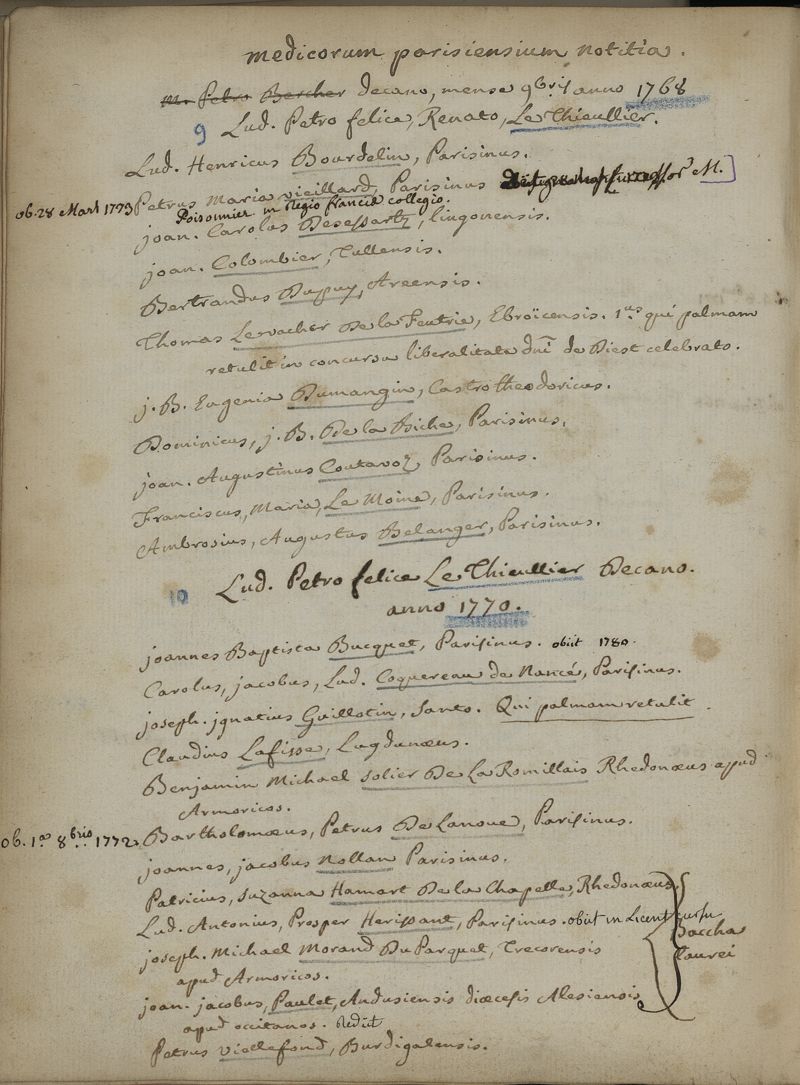 medicorum parisiensium notitia.
M. Petro Bercher decano, mense 9bris anno 1768
9 Lud. Petro felice, Renato, Le Thieullier.
Lud. Henricus Bourdelin, Parisinus.
ob. 28 Mart 1793 Petrus Maria vieillard, Parisinus M.
Poisonnier in Regio franciæ collegio.
joan. Carolus Desessartz, lingonensis.
joan. Colombier, Tullensis.
Bertrandus Dupuy, Areensis.
Thomas Levacher De la Feutrie, Ebroïcensis. 1us qui palmam
retulit in concursu liberalitate dni de Diest celebrato.
j. B. Eugenia Dumangin, Castrotheodoricus.
Dominicus, j. B. De la Biche, Parisinus.
joan. Augustinus Coutavoz Parisinus.
Franciscus, Maria, Le Moine, Parisinus.
Ambrosius, Augustus Belanger, Parisinus.
10 Lud. Petro felice Le Thieullier Decano.
anno 1770.
joannes Baptista Bucquet, Parisinus. obiit 1780.
Carolus, jacobus, Lud. Coquereau de Nancé, Parisinus.
joseph. jgnatius Guillotin, Santo. Qui palmam retulit.
Claudius Lafisse, Lugdunæus.
Benjamin Michael solier De La Romillais Rhedonæus apud
Armoricos.
ob. 1a 8bris 1772. Bartholomæus, Petrus De Lanoue, Parisinus.
joannes, jacobus Nollan Parisinus.
Patricius, suzanna Hamart De la Chapelle, Rhedonæus.
Lud. Antonius, Prosper Herissant, Parisinus. obiit in Licent. cursu
Baccha
laurei
joseph. Michael Morand DuParquet, Trecorensis
apud Armoricos.
joan. jacobus, Paulet, Andusiensis diœcesis Alesiensis
apud occitanos. Rediit
Petrus viellefond, Burdigalensis.